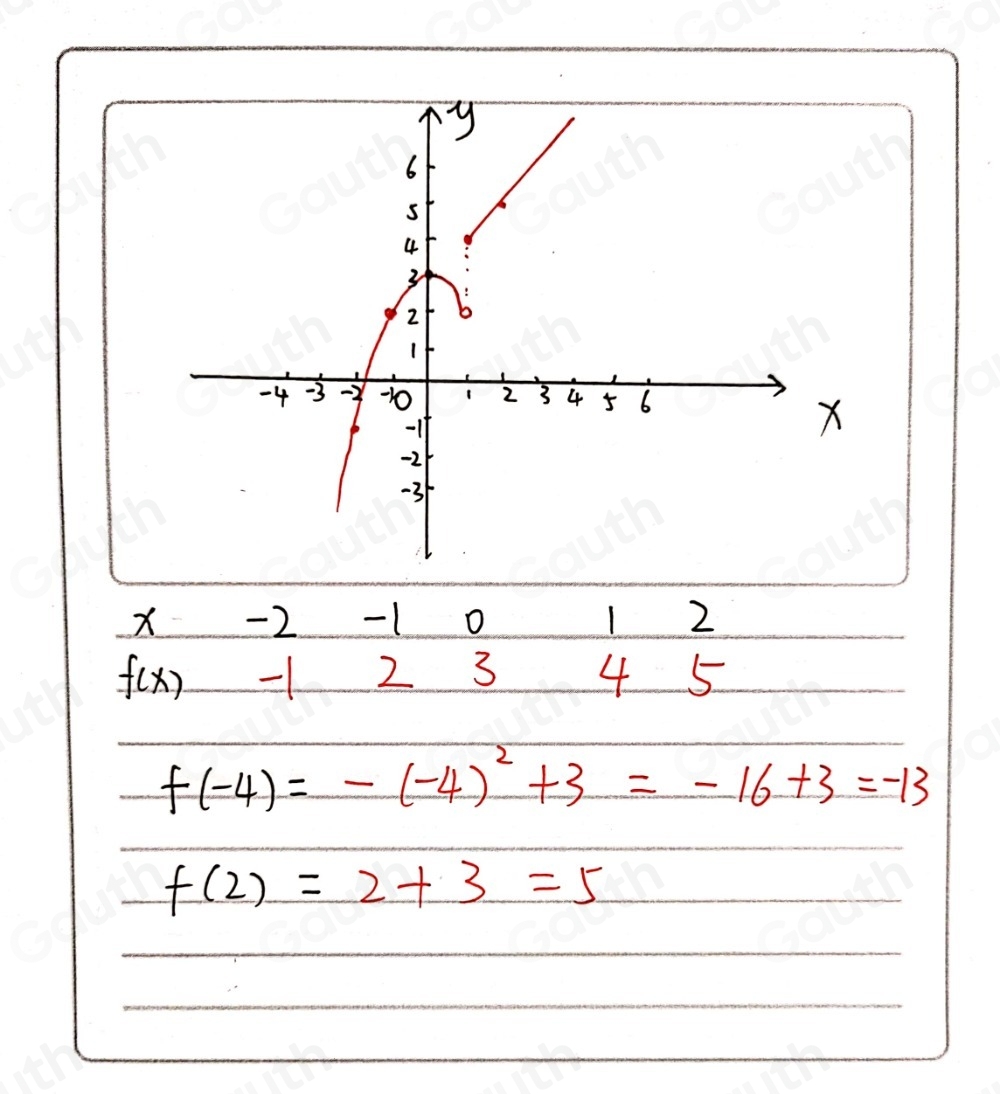 y
6
5
4
3
2
1
-4 -3 -2 -1 0 1 2 3 4 5 6
x
-1
-2
-3
x -2 -1 0 1 2
f(x) -1 2 3 4 5
f(-4) = -(-4)² +3 = -16+3 =-13
f(2) = 2+3 =5
Gauth